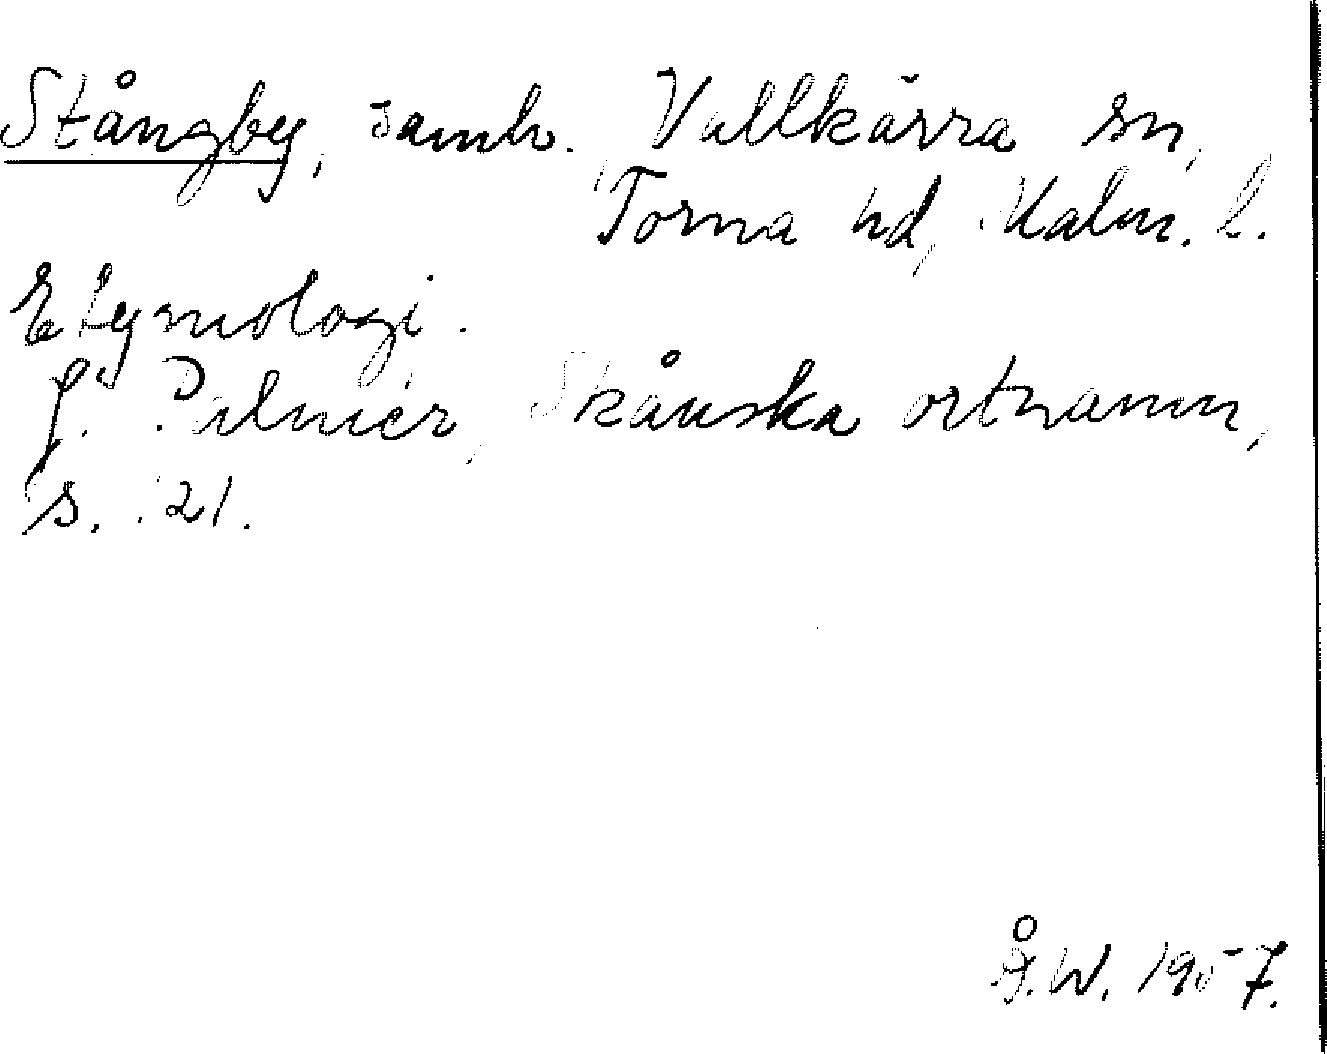 Stångby, samh. Vallkärra sn,
Torna hd, Malm. l.
Etymologi.
J. Palmér, Skånska ortnamn,
s. 21.
Å.W. 1957.